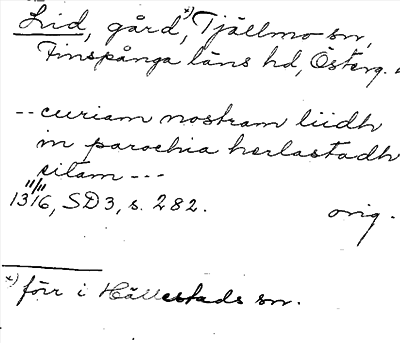 Lid, gård, *) Tjällmo sn,
Finspånga läns hd, Österg.
-- curiam nostram liidh
in parochia herlastadh
sitam ---
11/11
1316, SD3, s. 282. orig.
*) förr i Hällestads sn.